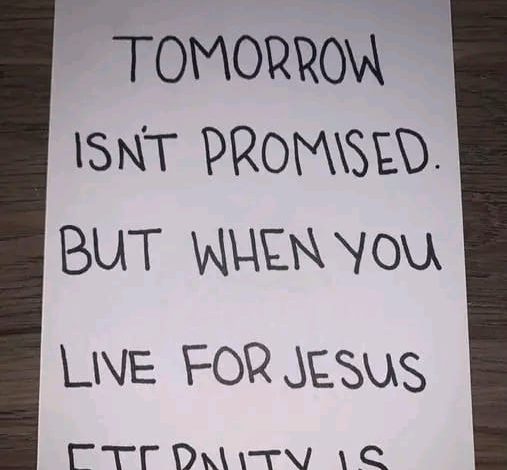 TOMORROW
ISN'T PROMISED.
BUT WHEN YOU
LIVE FOR JESUS
ETERNITY IS